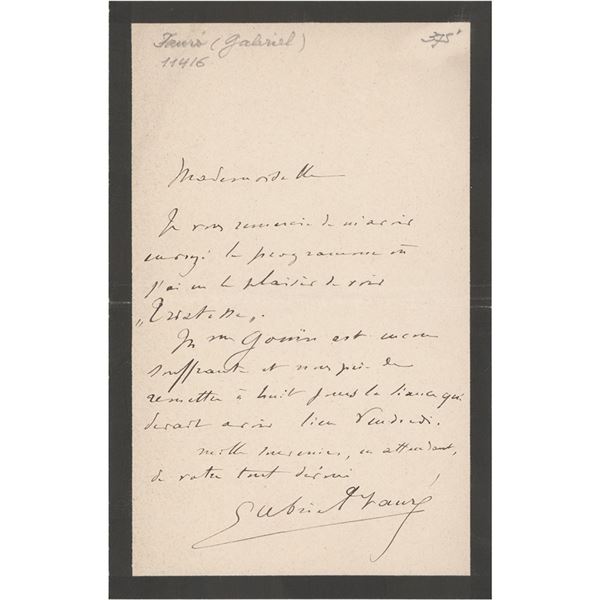 Fauré (Gabriel)
375'
11416
Mademoiselle
Je vous remercie de m'avoir
envoyé le programme où
j'ai eu le plaisir de voir
„Tristesse„.
est encore
souffrante et vous prie de
remettre à huit jours la séance qui
devait avoir lieu Vendredi.
mille souvenirs, en attendant,
de votre tout dévoué
Gabriel Fauré